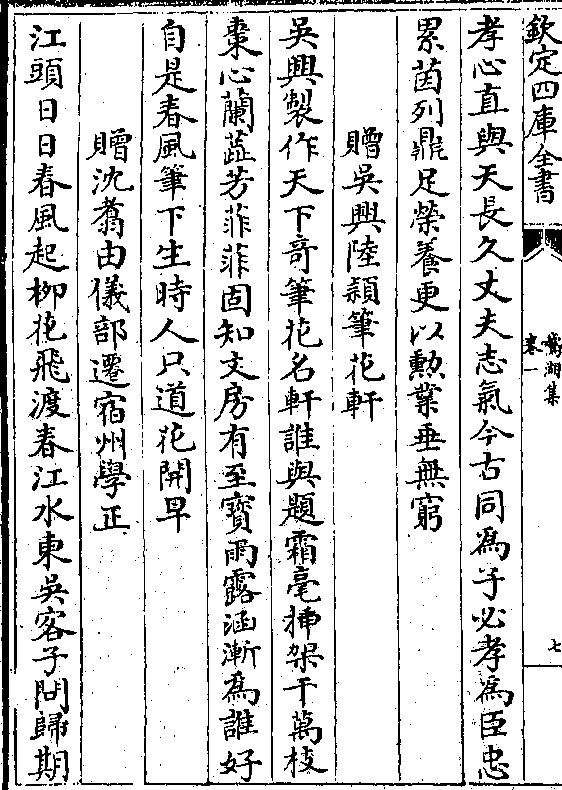 欽定四庫全書
鵞湖集
卷一
七
孝心直與天長久丈夫志氣今古同為子必孝為臣忠
累茵列鼎足榮養更以勲業垂無窮
贈吳興陸頴筆花軒
吳興製作天下奇筆花名軒誰與題霜毫插架千萬枝
棗心蘭蕋芳菲菲固知文房有至寳雨露涵漸為誰好
自是春風筆下生時人只道花開早
贈沈翥由儀部遷宿州學正
江頭日日春風起柳花飛渡春江水東吳客子問歸期